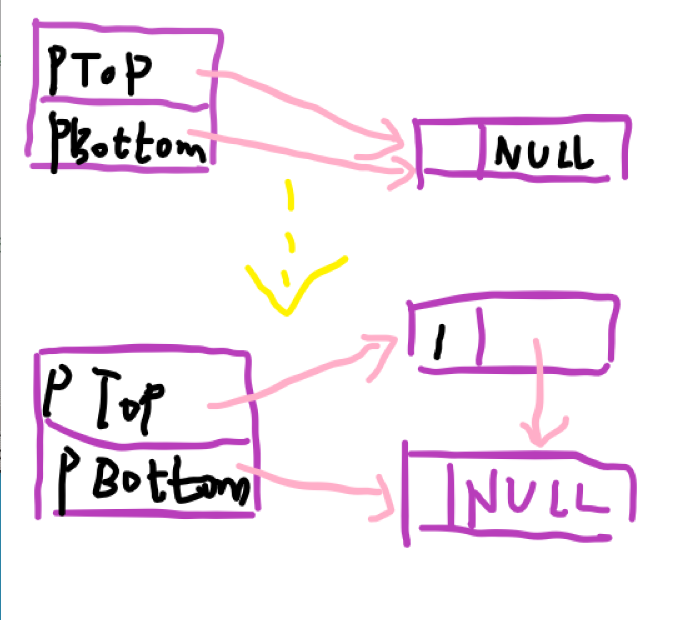 PToP
PBottom
NULL
1
P Top
P Bottom
NULL